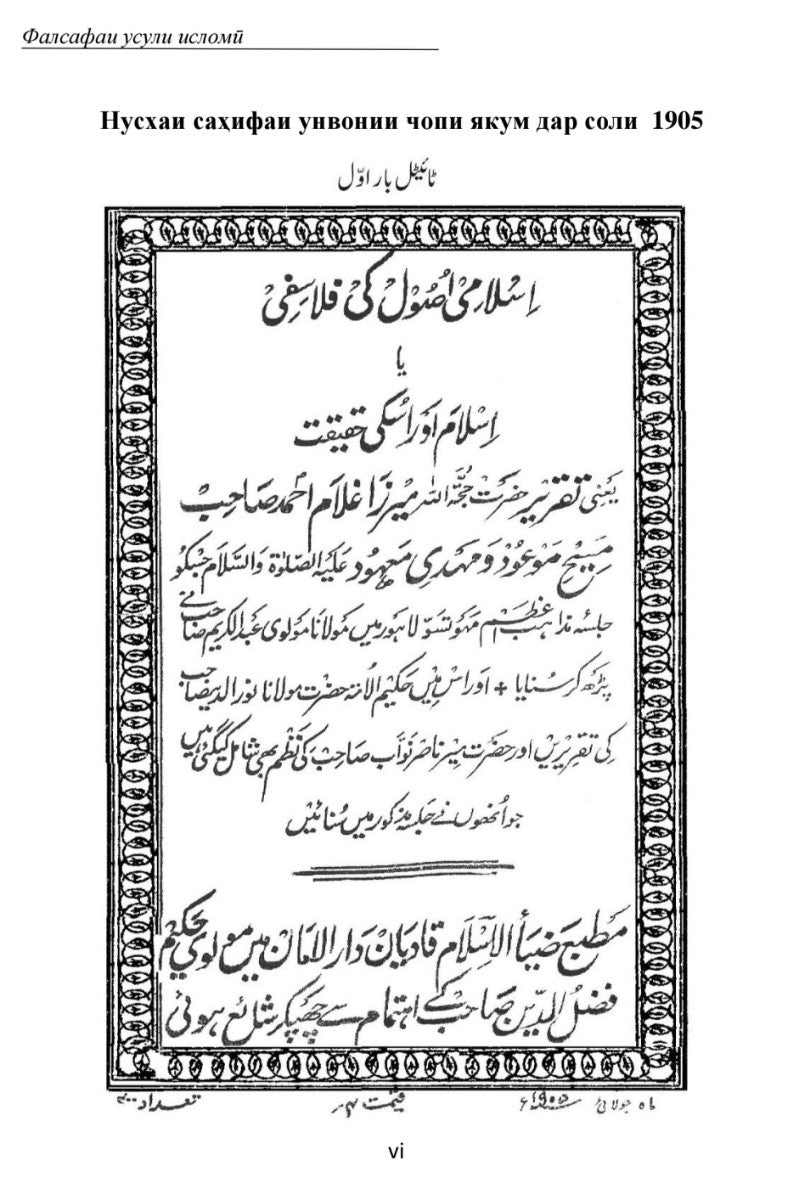 Фалсафаи усули исломӣ
Нусхаи саҳифаи унвонии чопи якум дар соли 1905
ٹائیٹل بار اوّل
اِسْلامِی اُصُول کی فلاسفی
یا
اِسْلام اور اسکی حقیقت
یعنی تقریر حضرت حجۃ اللہ میرزا غلام احمد صاحب
مسیح موعود و مہدی معہود علیہ الصلوٰۃ والسلام جسکو
جلسہ مذاہب اعظم مہوتسو لاہور میں مولانا مولوی عبد الکریم صاحب نے
پڑھ کر سنایا + اور اس میں حکیم الامۃ حضرت مولانا نور الدین صاحب
کی تقریریں اور حضرت میر ناصر نواب صاحب کی نظم بھی شامل کیگئی ہیں
جو اُنھوں نے جلسہ مذکور میں سُنائیں
مطبع ضیاء الاسلام قادیان دار الامان میں مولوی حکیم
فضل الدین صاحب کے اہتمام سے چھپکر شائع ہوئی
ماہ جولائی ۱۹۰۵ء قیمت تعداد
vi